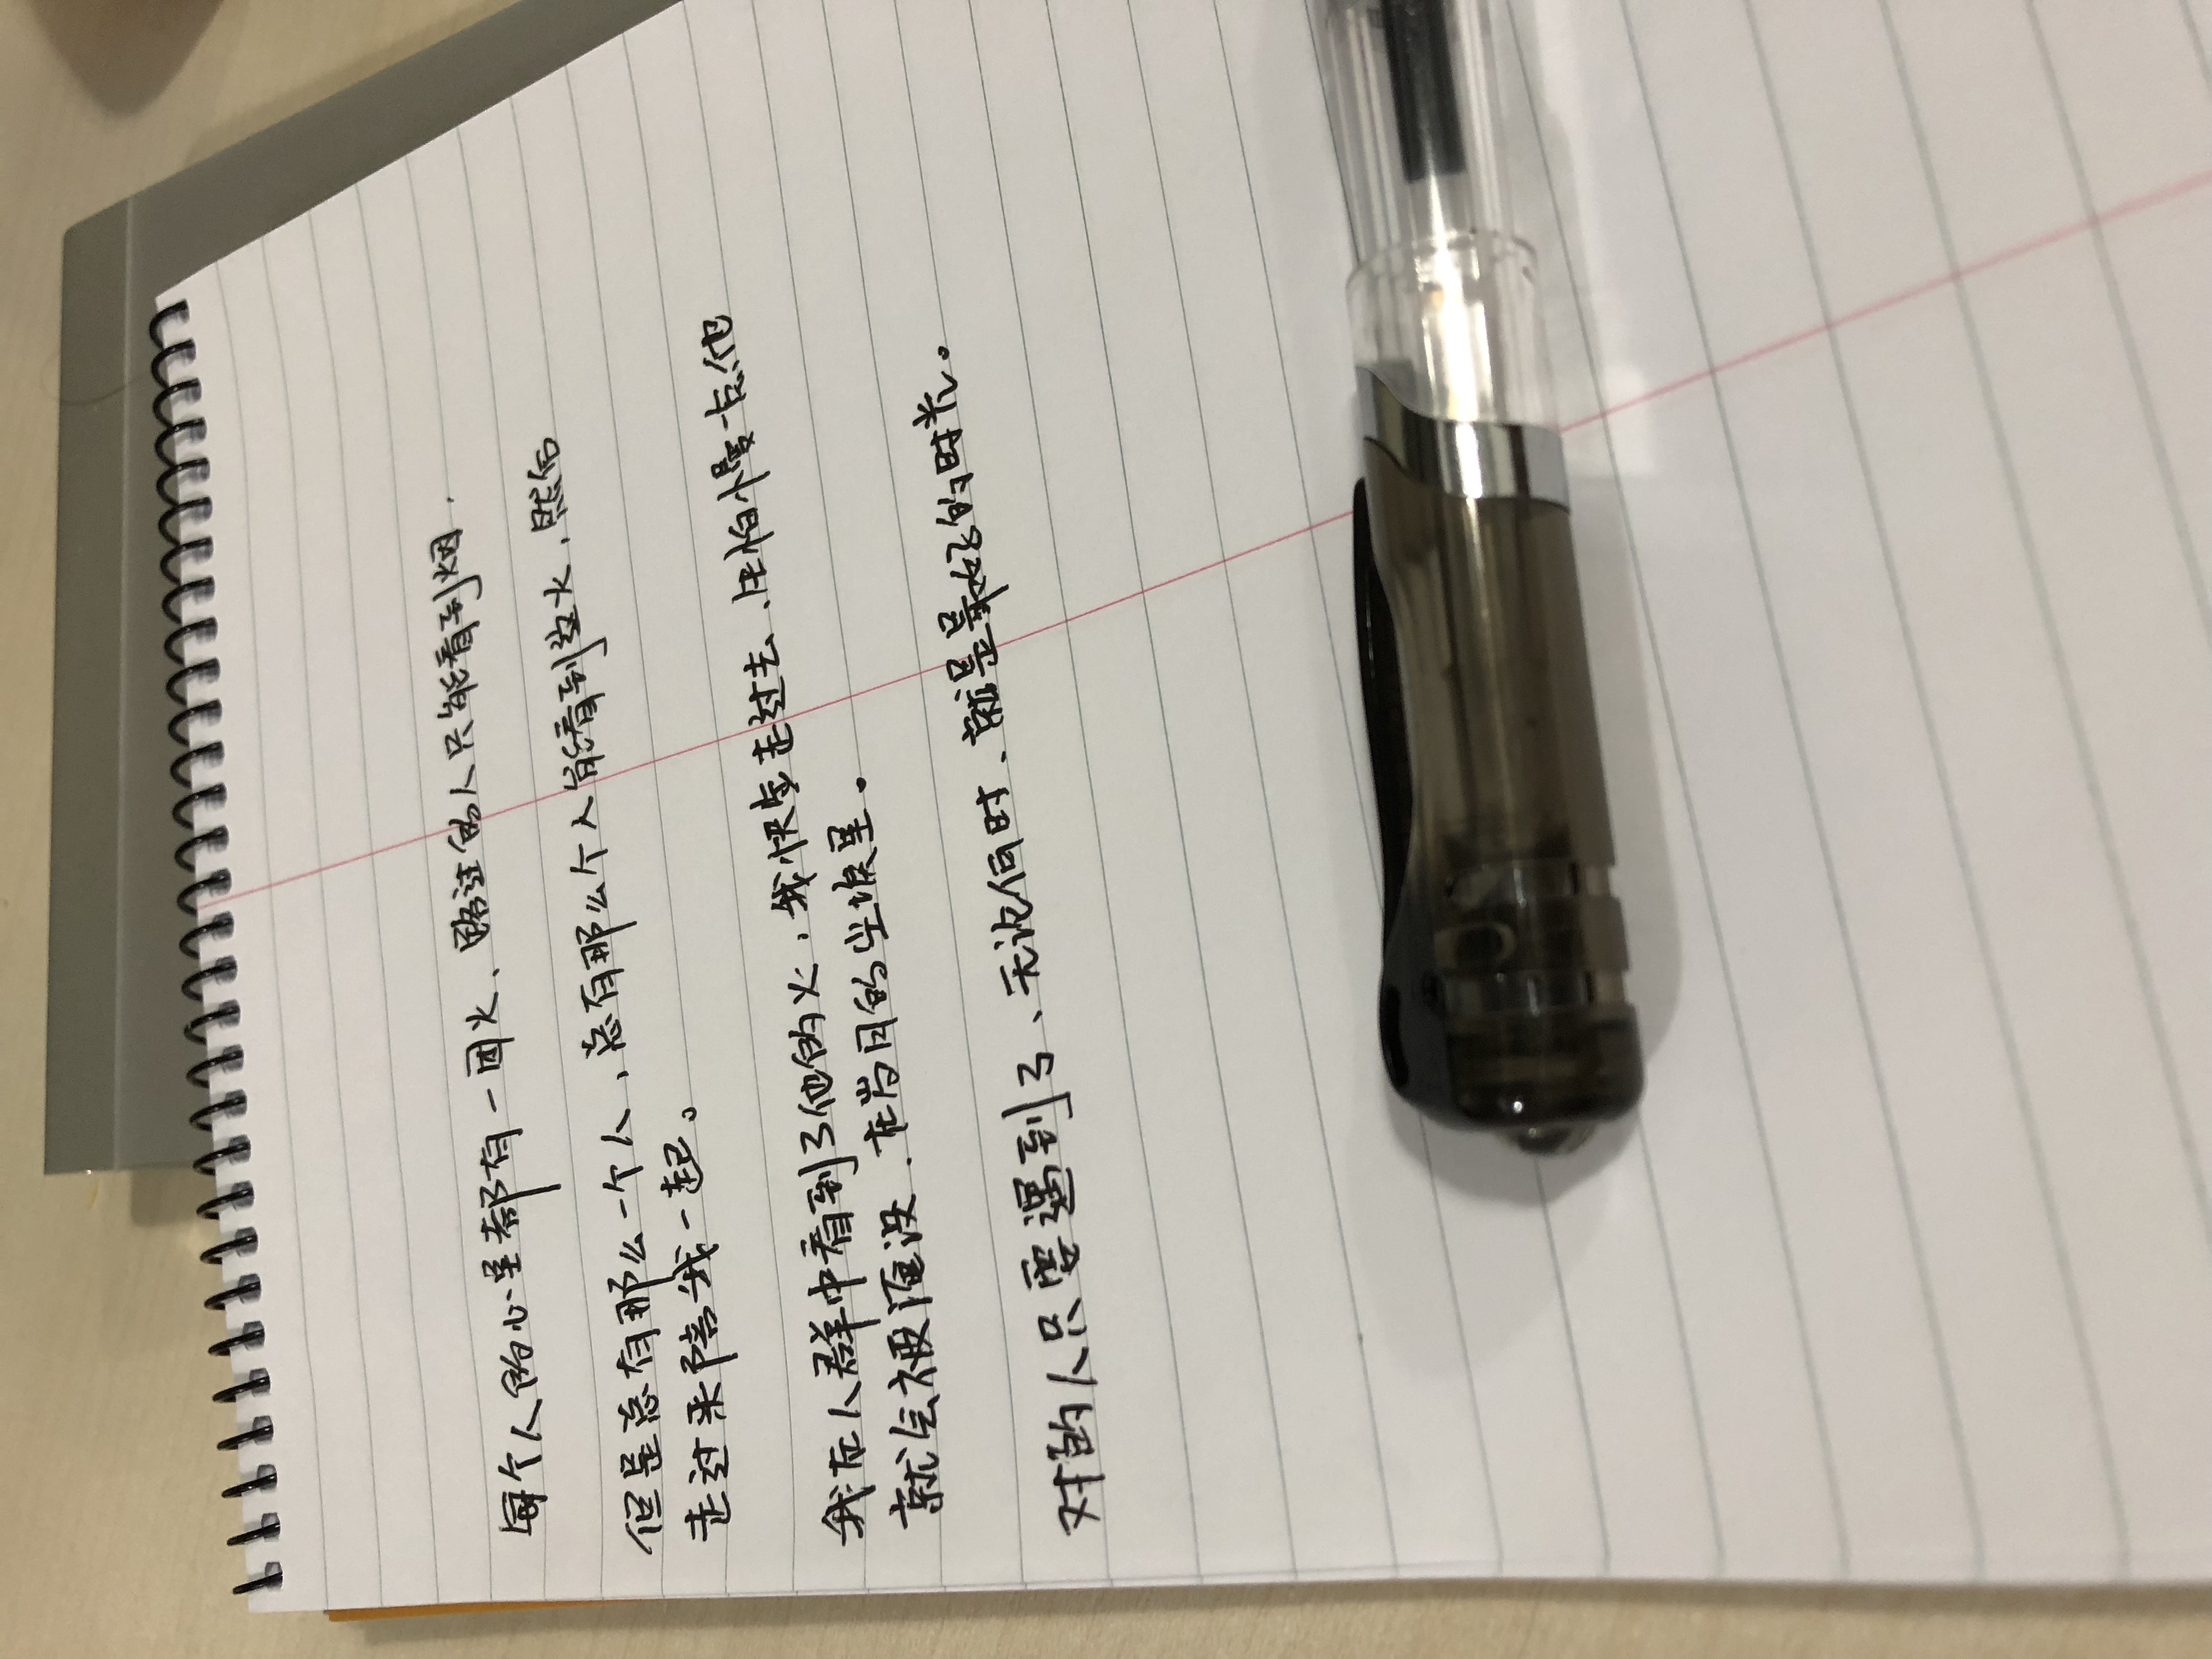 每个人的心里都有一团火、路过的人只能看到烟.
但是总有那么一个人,总有那么个人能看到这火,然后
走过来陪我一起。
我在人群中看到了他的火,我快步走过去、生怕慢一点他
就会被淹没、在岁月的尘埃里。
对的人只要遇到了、无论何时、就是最好的时光。